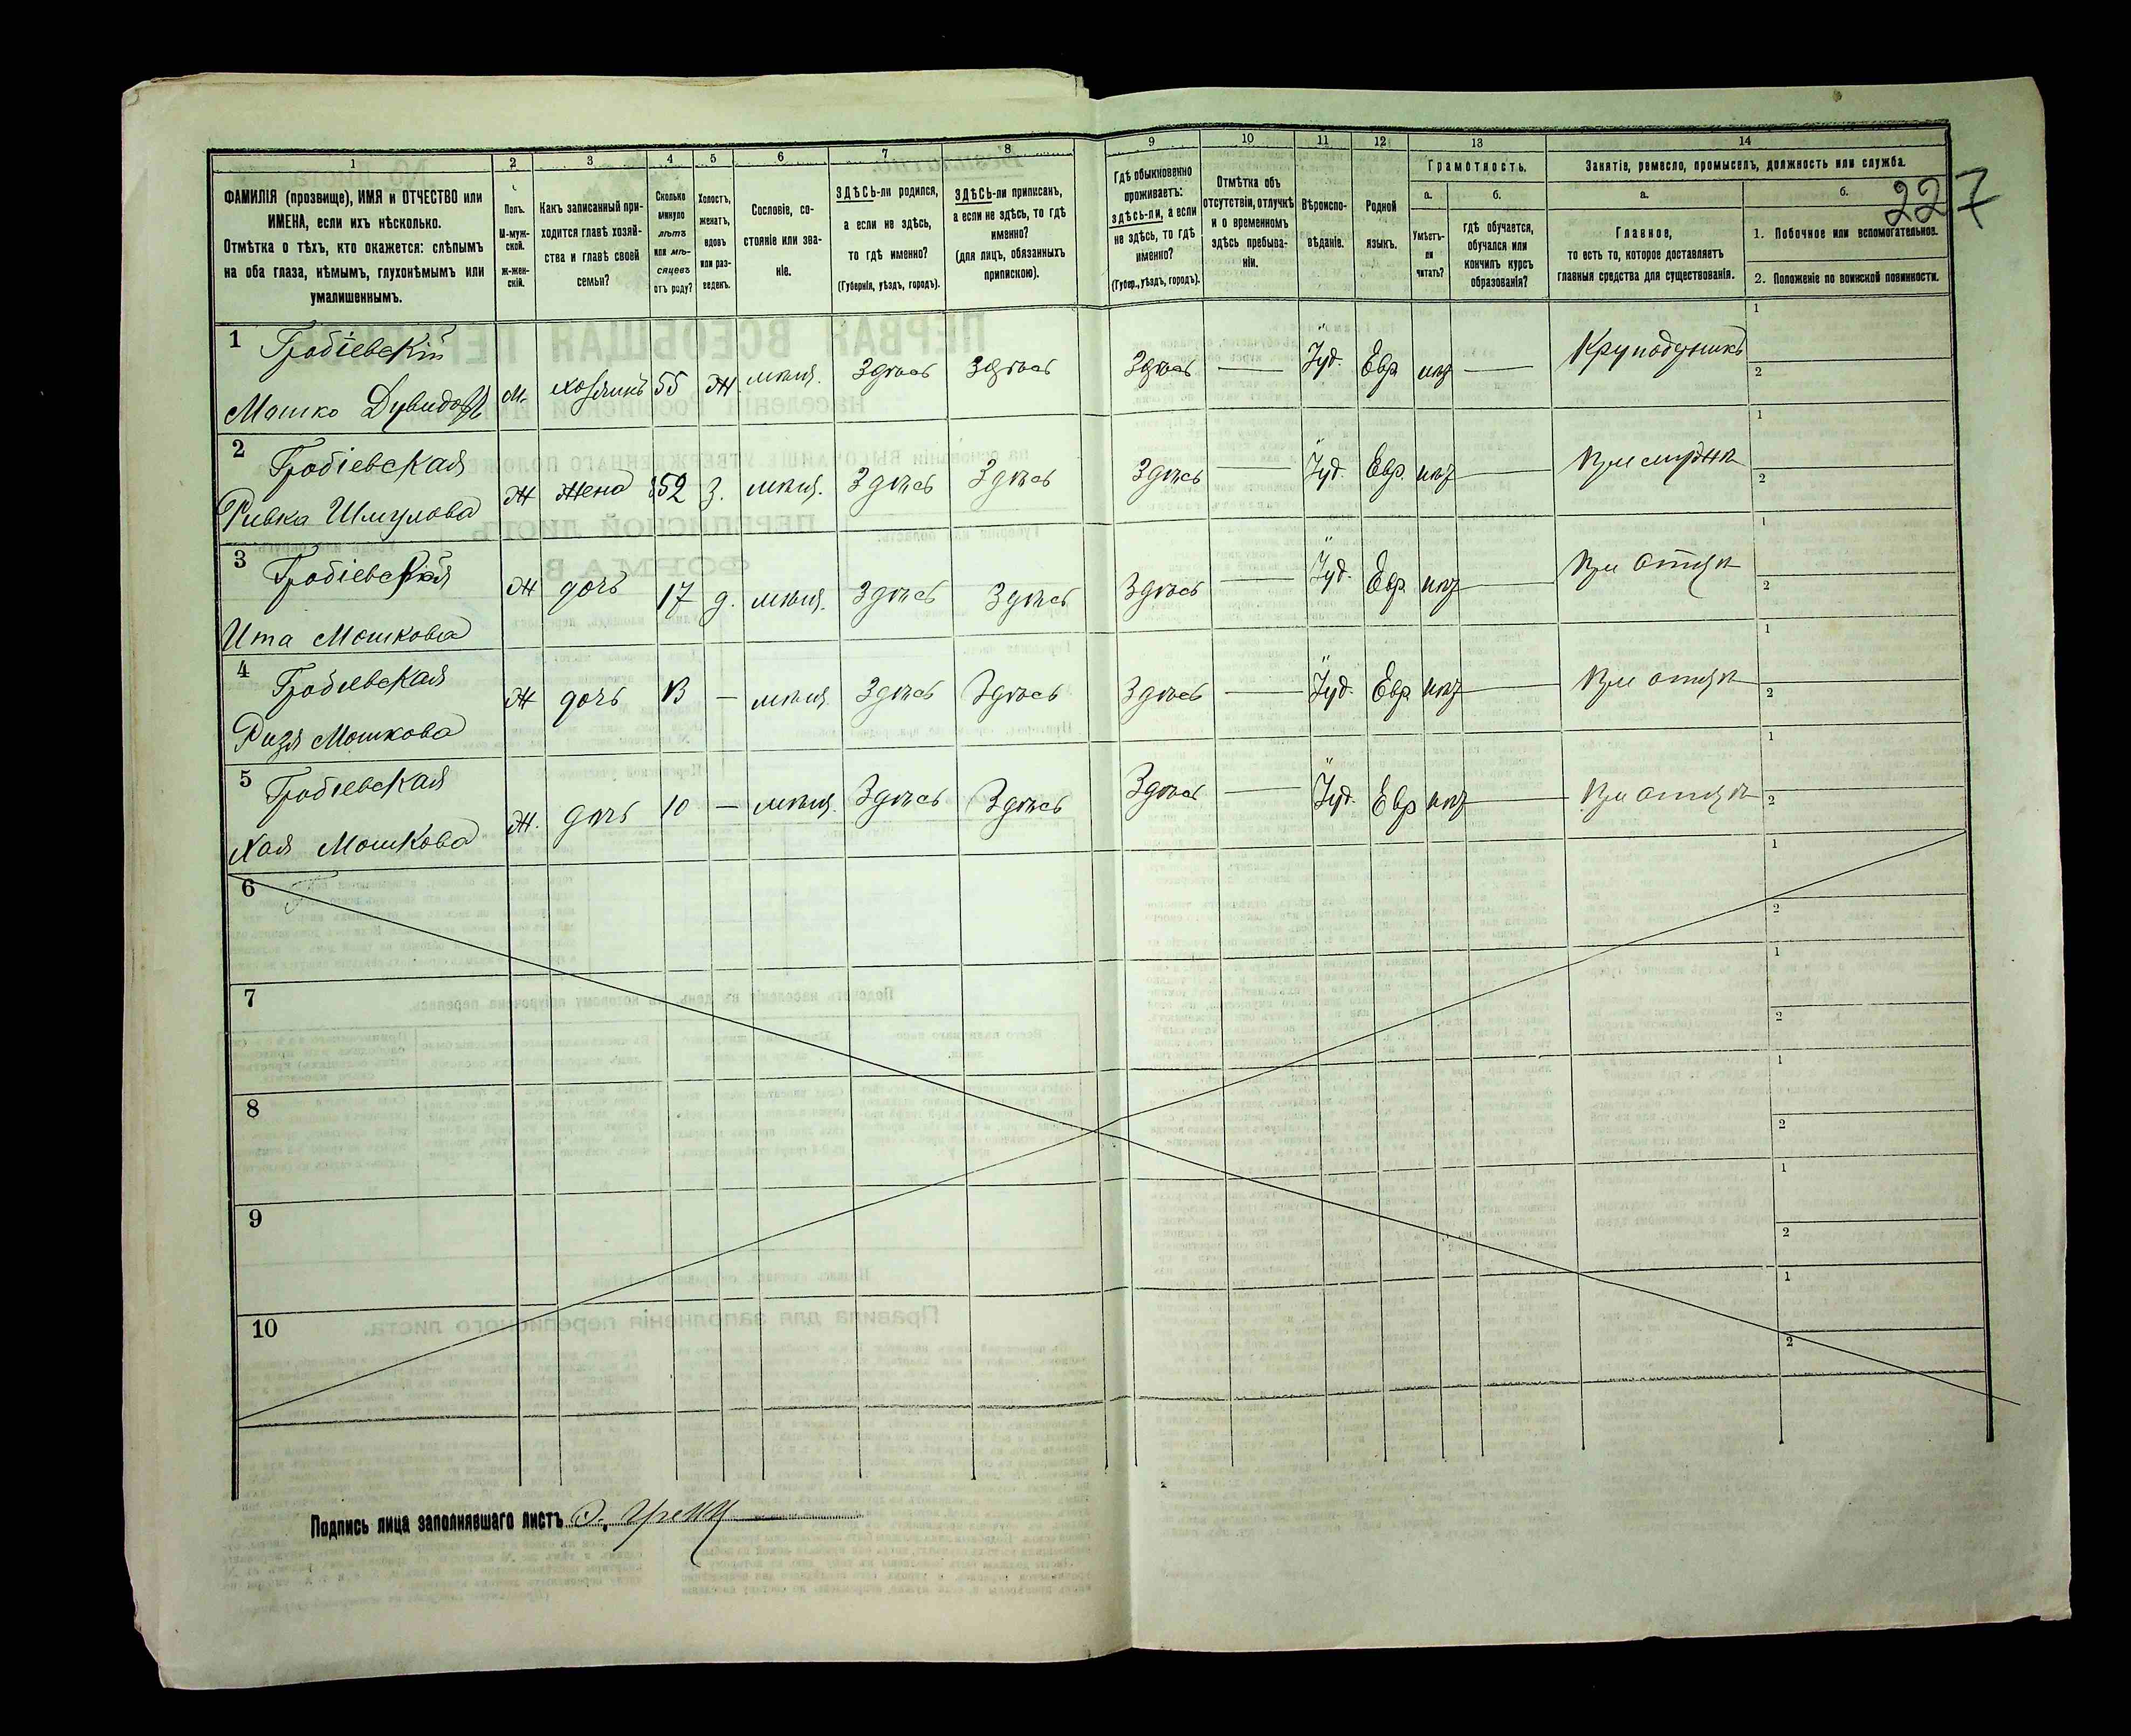 1 2 3 4 5 6 7 8 9 10 11 12 13 14
ФАМИЛІЯ (прозвище), ИМЯ и ОТЧЕСТВО или
ИМЕНА, если ихъ нѣсколько.
Отмѣтка о тѣхъ, кто окажется: слѣпымъ
на оба глаза, нѣмымъ, глухонѣмымъ или
умалишеннымъ.
Полъ.
М-муж-
ской.
Ж-жен-
скій.
Какъ записанный при-
ходится главѣ хозяй-
ства и главѣ своей
семьи?
Сколько
минуло
лѣтъ
или мѣ-
сяцевъ
отъ роду?
Холостъ,
женатъ,
вдовъ
или раз-
веденъ.
Сословіе, со-
стояніе или зва-
ніе.
ЗДѢСЬ-ли родился,
а если не здѣсь,
то гдѣ именно?
(Губернія, уѣздъ, городъ).
ЗДѢСЬ-ли приписанъ,
а если не здѣсь, то гдѣ
именно?
(для лицъ, обязанныхъ
припискою).
Гдѣ обыкновенно
проживаетъ:
здѣсь-ли, а если
не здѣсь, то гдѣ
именно?
(Губер., уѣздъ, городъ).
Отмѣтка объ
отсутствіи, отлучкѣ
и о временномъ
здѣсь пребыва-
ніи.
Вѣроиспо-
вѣданіе.
Родной
языкъ.
Грамотность.
а.
Умѣетъ-
ли
читать?
б.
гдѣ обучается,
обучался или
кончилъ курсъ
образованія?
Занятіе, ремесло, промыселъ, должность или служба.
а.
Главное,
то есть то, которое доставляетъ
главныя средства для существованія.
б.
227
1. Побочное или вспомогательное.
2. Положеніе по воинской повинности.
1 Гробіевскій
Мошко Дувидов м. хозяинъ 55 ж. мѣщ. Здѣсь Здѣсь Здѣсь — Іуд. Евр. нѣт —
1
2
2 Гробіевская
Ривка Шмулова ж жена 52 З. мѣщ. Здѣсь Здѣсь Здѣсь — Іуд. Евр. нѣт — При мужѣ
1
2
3 Гробіевская
Ита Мошкова ж дочь 17 д. мѣщ. Здѣсь Здѣсь Здѣсь — Іуд. Евр. нѣт — При отцѣ
1
2
4 Гробіевская
Рузя Мошкова ж дочь 13 — мѣщ. Здѣсь Здѣсь Здѣсь — Іуд. Евр. нѣт — При отцѣ
1
2
5 Гробіевская
Хая Мошкова ж. дочь 10 — мѣщ. Здѣсь Здѣсь Здѣсь — Іуд. Евр нѣт — При отцѣ
1
2
6
1
2
7
1
2
8
1
2
9
1
2
10
1
2
Подпись лица заполнявшаго листъ